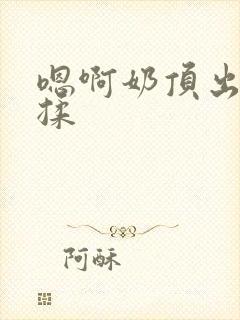 嗯啊奶頂出
揉
阿酥